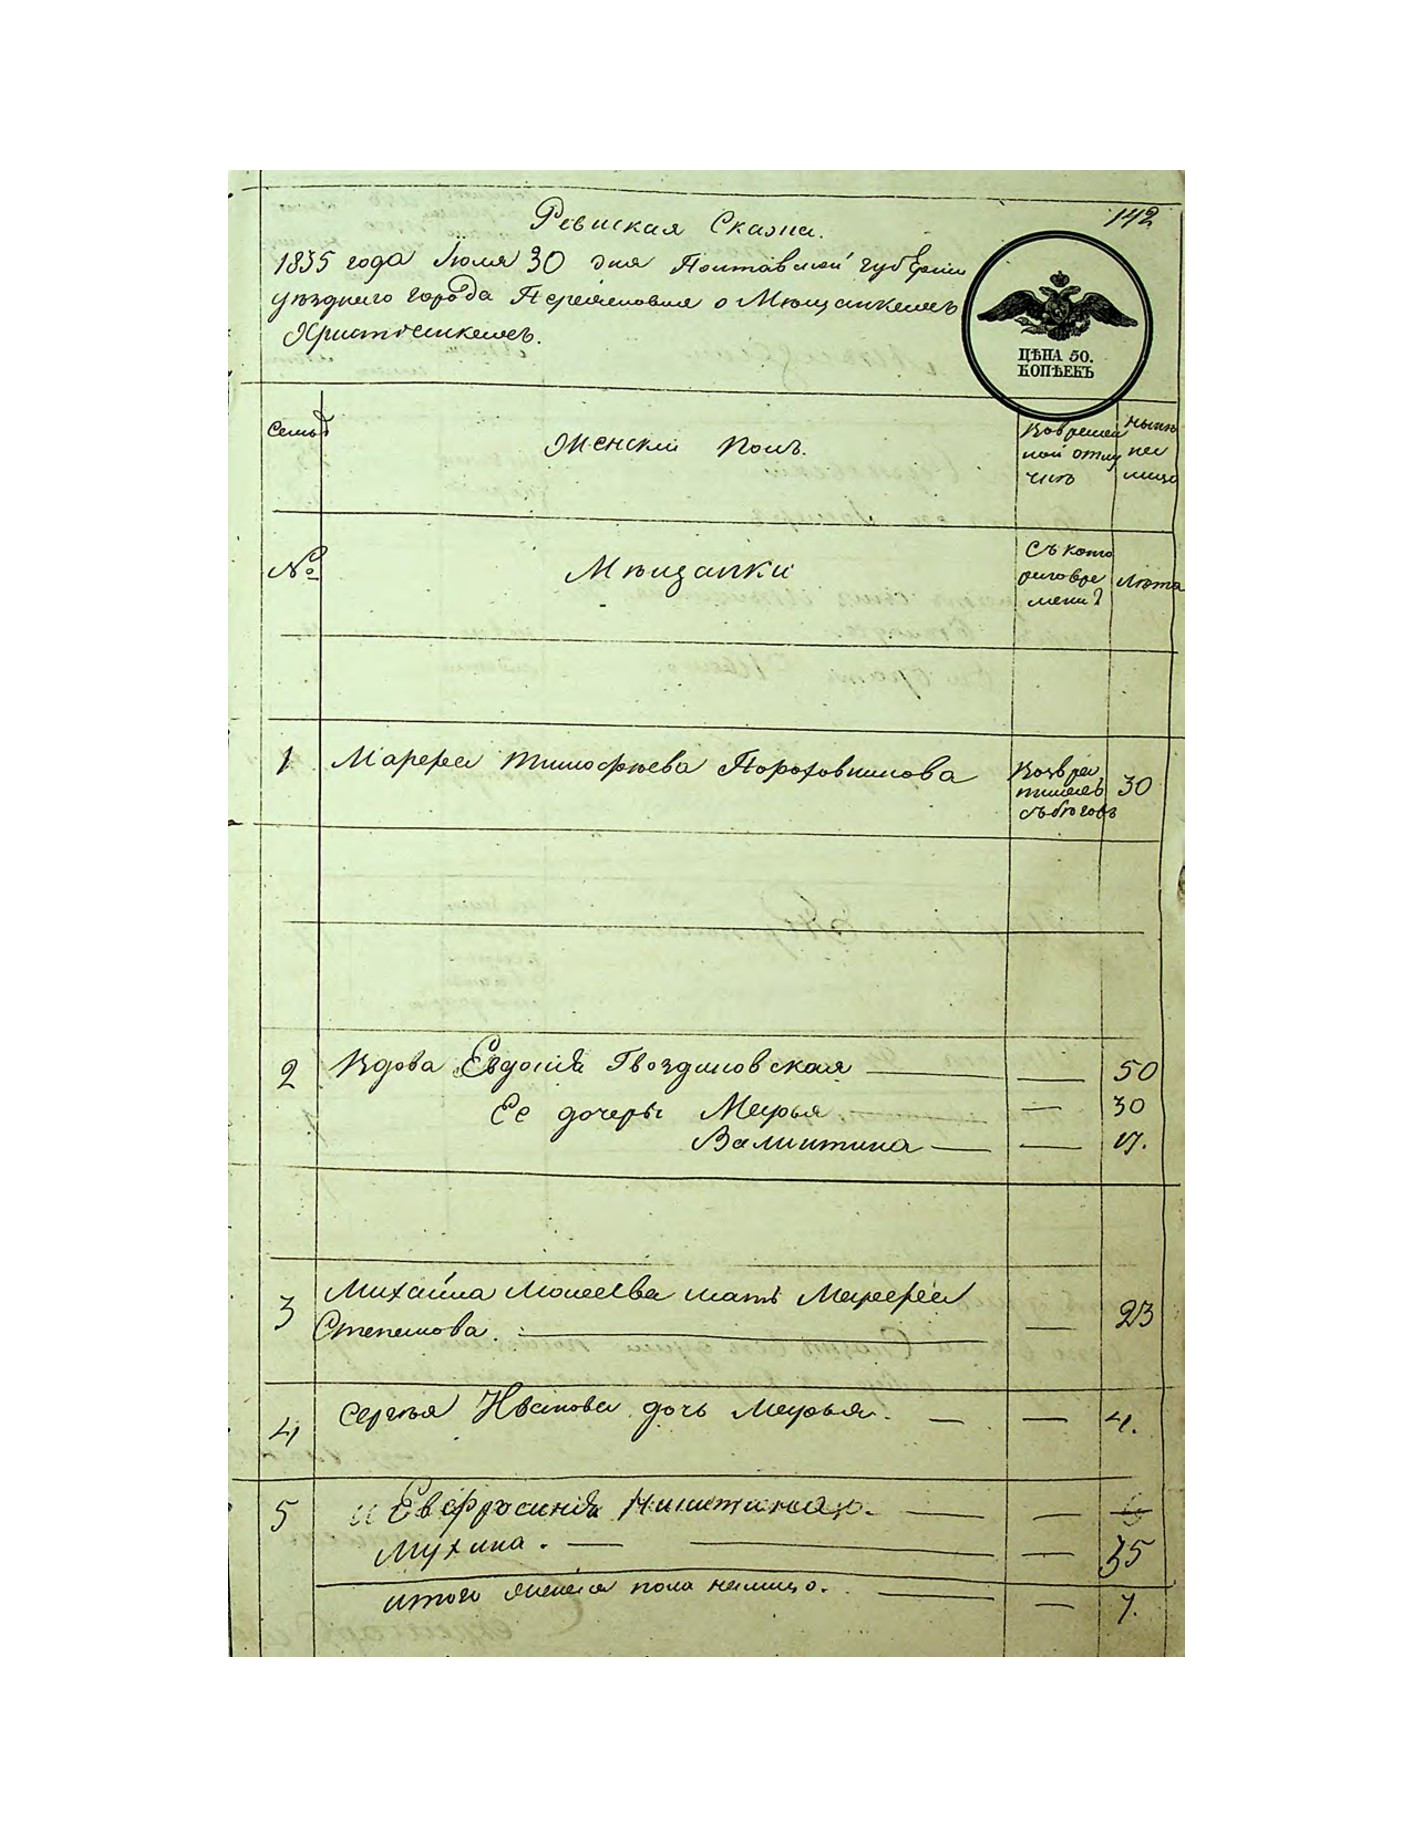 142
Ревиская Сказка.
1835 года Июля 30 дня Полтавской губернии
уѣзднаго города Переяславля о Мѣщанкахъ
Христианкахъ.
ЦѢНА 50.
КОПѢЕКЪ
Семьи
Женский Полъ.
Во времен
ной отлу
чкѣ
нынѣ
на
лицо
№
Мѣщанки
Съ кото
раго вре
мени?
Лѣта
1 Марфа Тимофѣева Пороховникова Возвра 30
тилась
съ бѣговъ
2 Вдова Евдокія Гвоздиковская — — 50
Ее дочеры Марья — 30
Валинтина — — 17.
3 Михайла Моисеева мать Марфа
Степанова. — — 23
4 Сергѣя Иванова дочь Марья. — — 4.
5 Евфросинія Никитина — —
Мухина. — — — 35
итого женска пола налицо. — — 7.